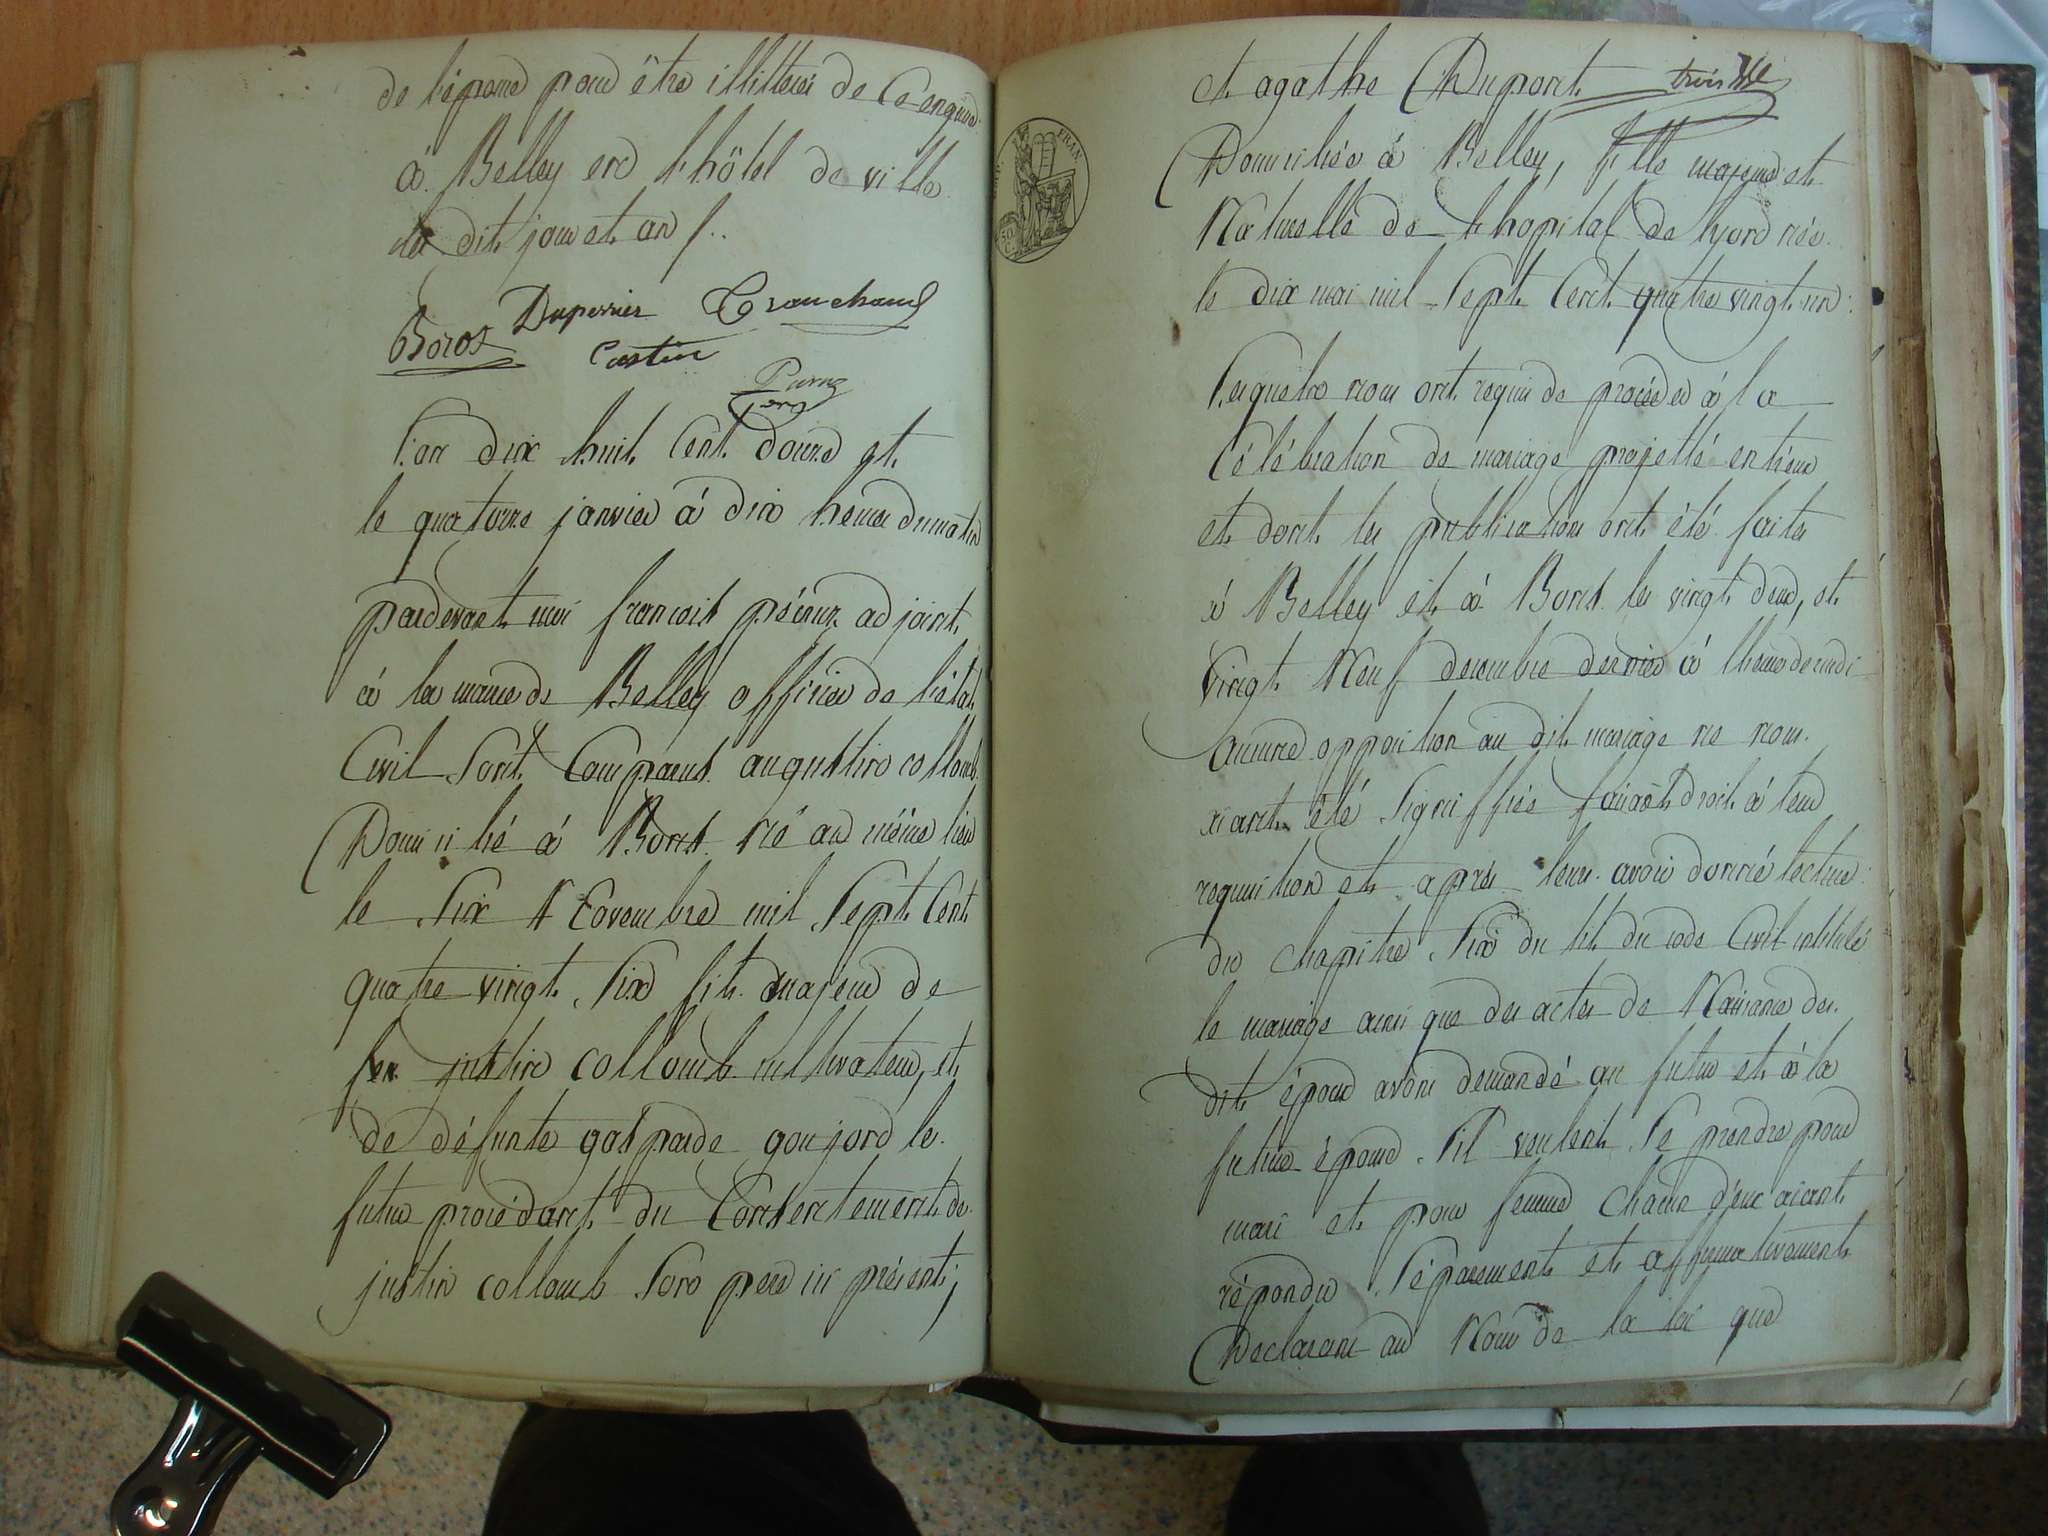 de l'épouse pour être illitterés de Ce enquis.
à Belley en l'hôtel de ville
du dit jour et an
Duperrier Tranchand
Boros Castin
l'an dix huit Cent douze et
le quatorze janvier à dix heures du matin
pardevant moi françois adjoint
à la mairie de Belley officier de l'état
Civil Sont Comparus augustin collomb
Domicilié à Bons né au même lieu
le Six Novembre mil Sept Cent
quatre vingt Six fils majeur de
feu justin collomb cultivateur, et
de défunte gasparde goujon le
futur procédant du Consentement de
justin collomb Son pere ici présent;
et agathe Dupont
Domiciliée à Belley, fille majeure et
Naturelle de l'hopital de lyon née
le dix mai mil Sept Cent quatre vingt un:
Lesquels nous ont requis de procéder à la
Célébration de mariage projetté entreux
et dont les publications ont été faites
à Belley et à Bons les vingt deux, et
Vingt Neuf decembre dernier à lheure de midi
aucune opposition au dit mariage ne nous
aiant été Signiffiée faisant droit à leur
requisition et après leur avoir donné lecture
du chapitre Six du tit. du code Civil intitulé
le mariage ainsi que des actes de Naissance des
dits époux avons demandé au futur et à la
future épouse S'il veulent Se prendre pour
mari et pour femme chacun d'eux aiant
répondu Séparement et affirmativement
Declarons au Nom de la loi que
FRAN